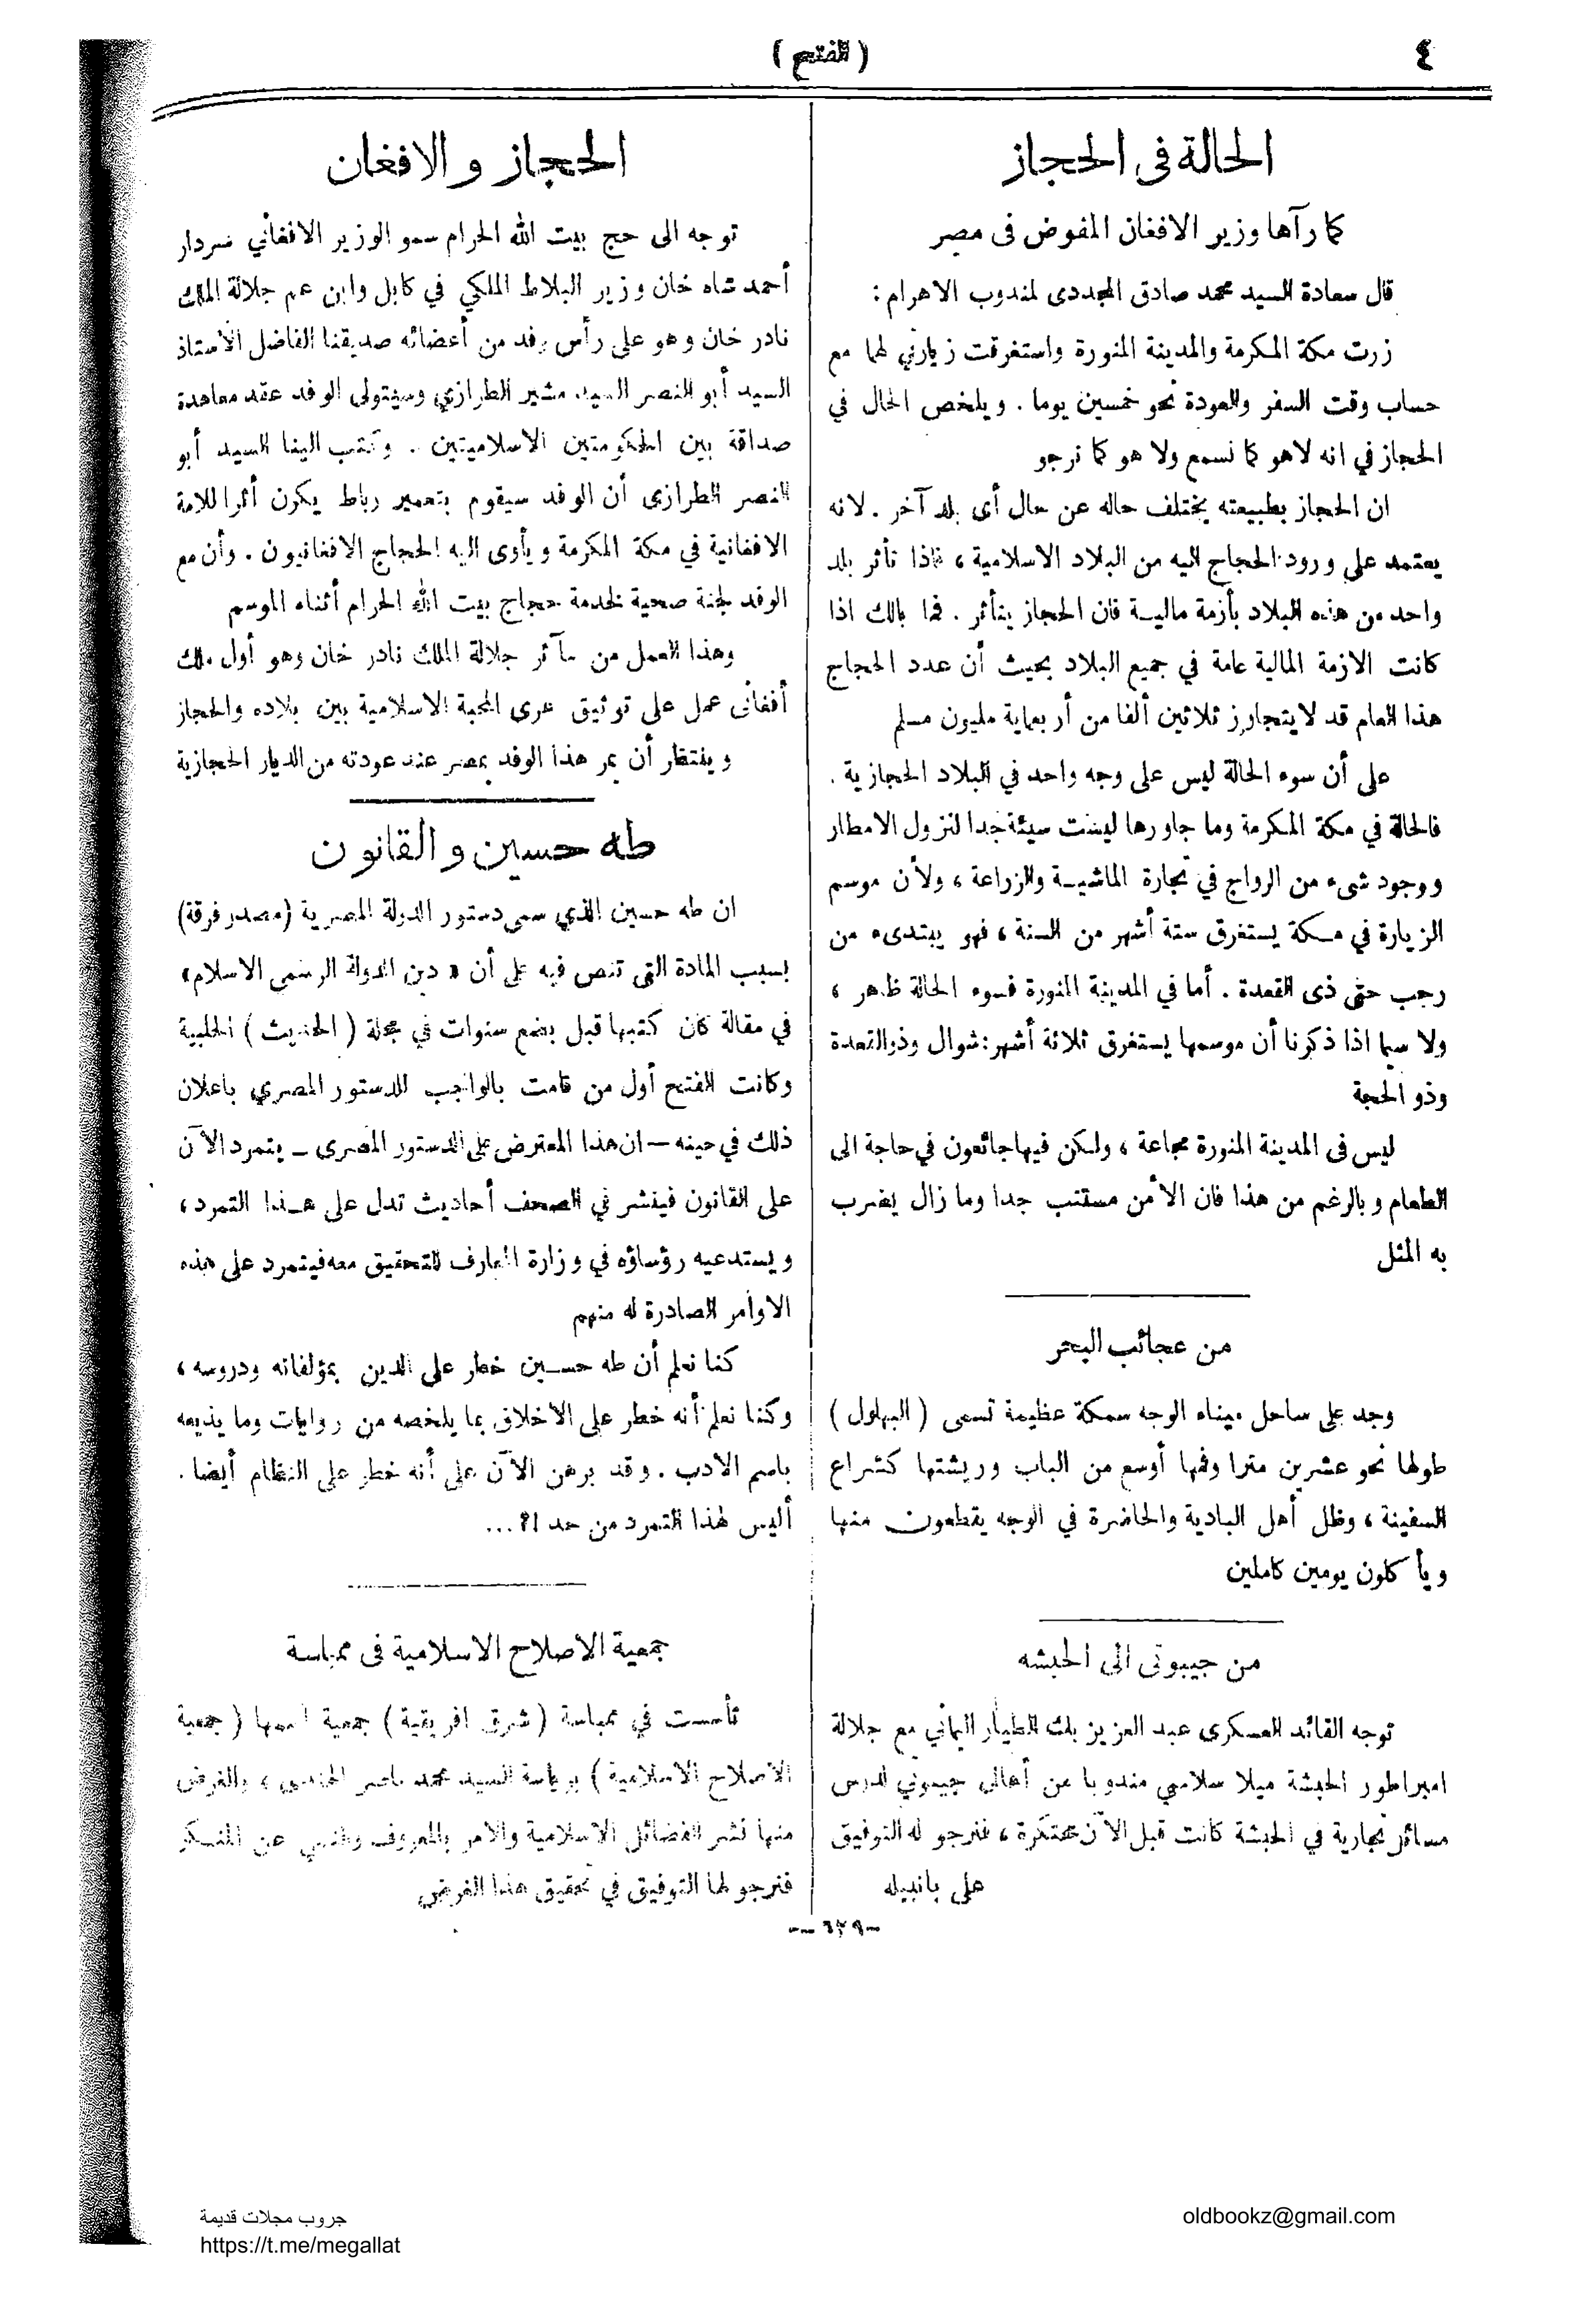 ٤
( الفتح )
الحالة فى الحجاز
كما رآها وزير الافغان المفوض فى مصر
قال سعادة السيد محمد صادق المجددى لمندوب الاهرام :
زرت مكة المكرمة والمدينة المنورة واستغرقت زيارتي لهما مع
حساب وقت السفر والعودة نحو خمسين يوما . ويلخص الحال في
الحجاز في انه لاهو كما نسمع ولا هو كما نرجو
ان الحجاز بطبيعته يختلف حاله عن حال أى بلد آخر . لانه
يعتمد على ورود الحجاج اليه من البلاد الاسلامية ، فاذا تأثر بلد
واحد من هذه البلاد بأزمة مالية فان الحجاز يتأثر . فما بالك اذا
كانت الازمة المالية عامة في جميع البلاد بحيث أن عدد الحجاج
هذا العام قد لايتجاوز ثلاثين ألفا من أربعماية مليون مسلم
على أن سوء الحالة ليس على وجه واحد في البلاد الحجازية .
فالحالة في مكة المكرمة وما جاورها ليست سيئة جدا لنزول الامطار
ووجود شىء من الرواج في تجارة الماشية والزراعة ، ولأن موسم
الزيارة في مكة يستغرق ستة أشهر من السنة ، فهو يبتدىء من
رجب حتى ذى القعدة . أما في المدينة المنورة فسوء الحالة ظاهر ،
ولا سيما اذا ذكرنا أن موسمها يستغرق ثلاثة أشهر : شوال وذوالقعدة
وذو الحجة
ليس فى المدينة المنورة مجاعة ، ولكن فيها جائعون في حاجة الى
الطعام وبالرغم من هذا فان الأمن مستتب جدا وما زال يضرب
به المثل
من عجائب البحر
وجد على ساحل ميناء الوجه سمكة عظيمة تسمى ( البهلول )
طولها نحو عشرين مترا وفمها أوسع من الباب وريشتها كشراع
السفينة ، وظل أهل البادية والحاضرة في الوجه يقطعون منها
ويأكلون يومين كاملين
من جيبوتى الى الحبشه
توجه القائد العسكرى عبد العزيز بك الطيار اليماني مع جلالة
امبراطور الحبشة هيلا سلاسي مندوبا عن أهالى جيبوتي لدرس
مسائل تجارية في الحبشة كانت قبل الآن محتكرة ، فنرجو له التوفيق
على يانبيله
الحجاز والافغان
توجه الى حج بيت الله الحرام سمو الوزير الافغاني سردار
أحمد شاه خان وزير البلاط الملكي في كابل وابن عم جلالة الملك
نادر خان وهو على رأس وفد من أعضائه صديقنا الفاضل الأستاذ
السيد أبو النصر السيد مبشر الطرازي وسيتولى الوفد عقد معاهدة
صداقة بين الحكومتين الاسلاميتين . وكتب الينا السيد أبو
النصر الطرازى أن الوفد سيقوم بتعمير رباط يكون أثرا للامة
الافغانية في مكة المكرمة ويأوى اليه الحجاج الافغانيون . وأن مع
الوفد لجنة صحية لخدمة حجاج بيت الله الحرام أثناء الموسم
وهذا العمل من مآثر جلالة الملك نادر خان وهو أول ملك
أفغانى عمل على توثيق عرى المحبة الاسلامية بين بلاده والحجاز
وينتظر أن يمر هذا الوفد بمصر عند عودته من الديار الحجازية
طه حسين والقانون
ان طه حسين الذي سمى دستور الدولة المصرية (مصدر فرقة)
بسبب المادة التى تنص فيه على أن « دين الدولة الرسمى الاسلام»
في مقالة كان كتبها قبل بضع سنوات في مجلة ( الحديث ) الحلبية
وكانت الفتح أول من قامت بالواجب للدستور المصري باعلان
ذلك في حينه — ان هذا المعترض على الدستور المصرى — يتمرد الآن
على القانون فينشر في الصحف أحاديث تدل على هذا التمرد ،
ويستدعيه رؤساؤه في وزارة المعارف للتحقيق معه فيتمرد على هذه
الاوامر الصادرة له منهم
كنا نعلم أن طه حسين خطر على الدين بمؤلفاته ودروسه ،
وكنا نعلم أنه خطر على الاخلاق بما يلخصه من روايات وما يذيعه
باسم الادب . وقد برهن الآن على أنه خطر على النظام أيضا .
أليس لهذا التمرد من حد ؟! ...
جمعية الاصلاح الاسلامية فى ممباسة
تأسست في ممباسة ( شرق افريقية ) جمعية اسمها ( جمعية
الاصلاح الاسلامية ) برياسة السيد محمد ناصر ، والغرض
منها نشر الفضائل الاسلامية والامر بالمعروف والنهي عن المنكر
فنرجو لها التوفيق في تحقيق هذا الغرض
— ٦٢٩ —
جروب مجلات قديمة
https://t.me/megallat
oldbookz@gmail.com